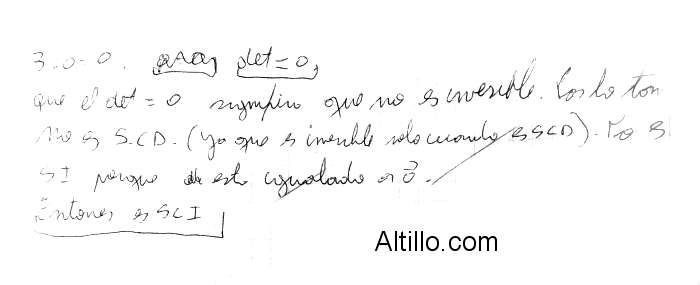 3.0=0. det=0,
que el det=0 significa que no es inversible. Por lo tan
no es S.C.D. (ya que es inversible solo cuando es SCD). No es
SI porque esta igualado a 0.
Entonces es SCI
Altillo.com